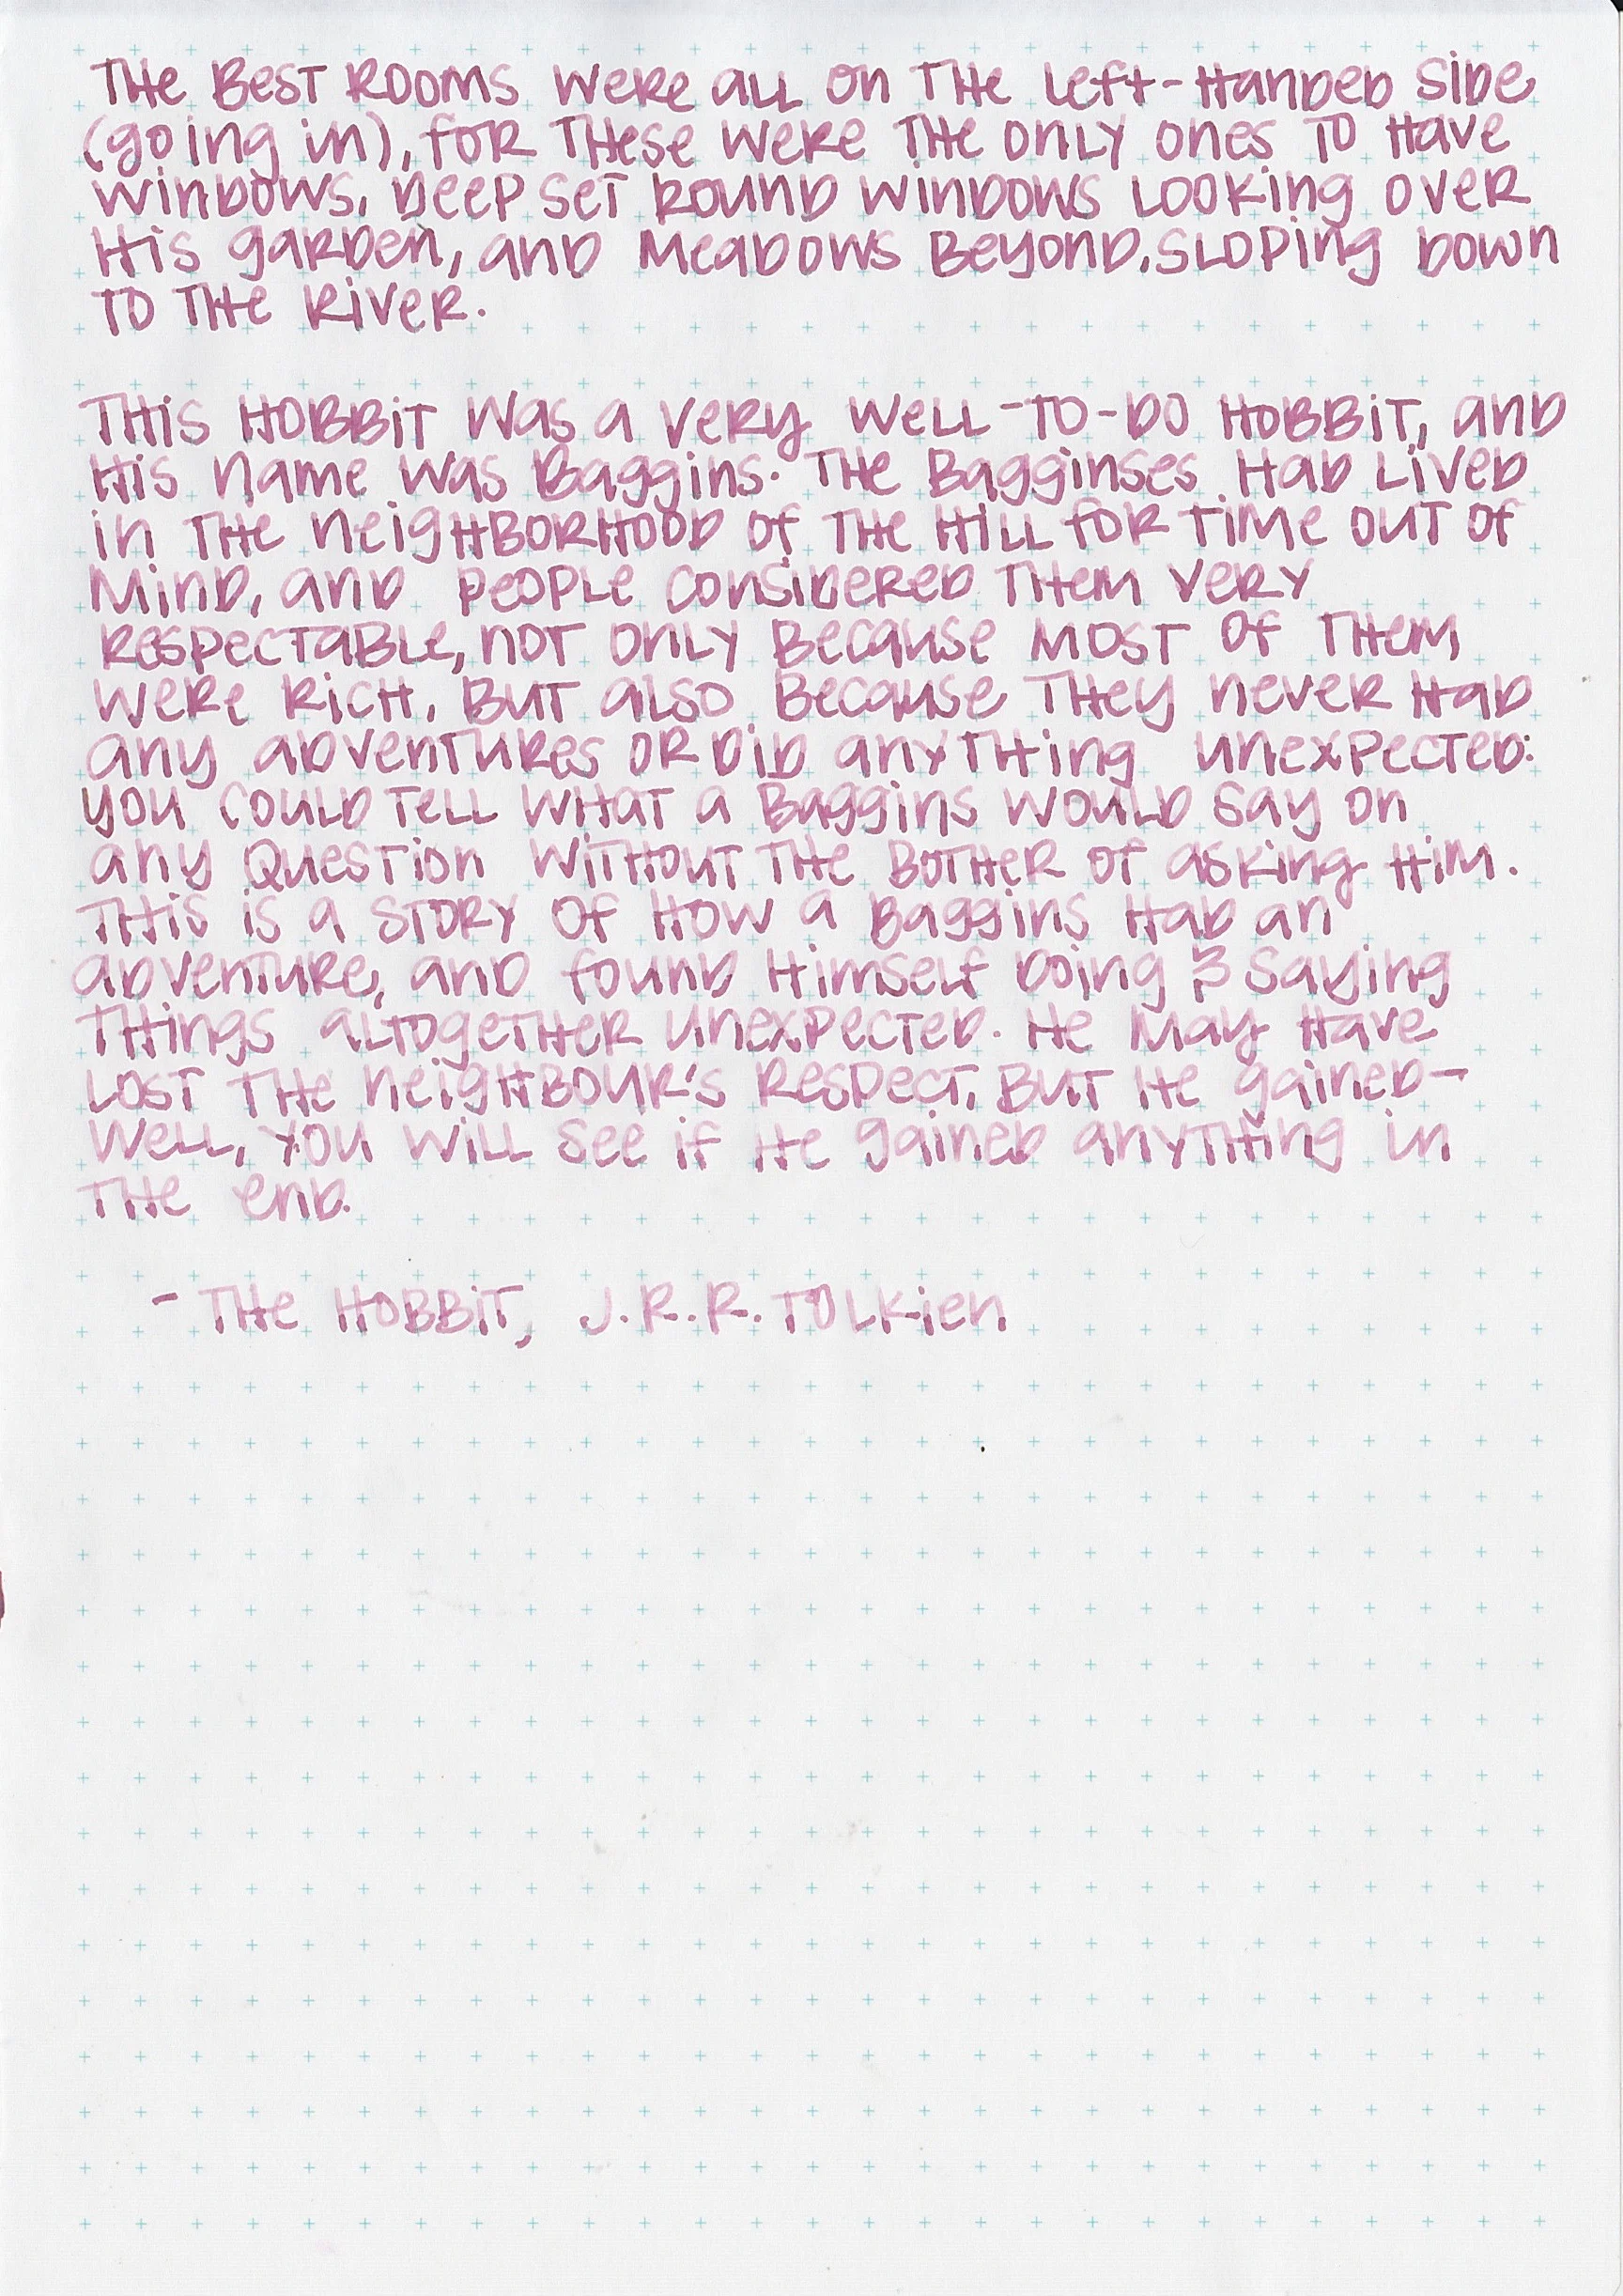 The best rooms were all on the left-handed side
(going in), for these were the only ones to have
windows, deep set round windows looking over
his garden, and meadows beyond, sloping down
to the river.
This hobbit was a very well-to-do hobbit, and
his name was Baggins. The Bagginses had lived
in the neighborhood of the hill for time out of
mind, and people considered them very
respectable, not only because most of them
were rich, but also because they never had
any adventures or did anything unexpected:
you could tell what a Baggins would say on
any question without the bother of asking him.
This is a story of how a Baggins had an
adventure, and found himself doing & saying
things altogether unexpected. He may have
lost the neighbour's respect, but he gained—
well, you will see if he gained anything in
the end.
- The Hobbit, J.R.R. Tolkien